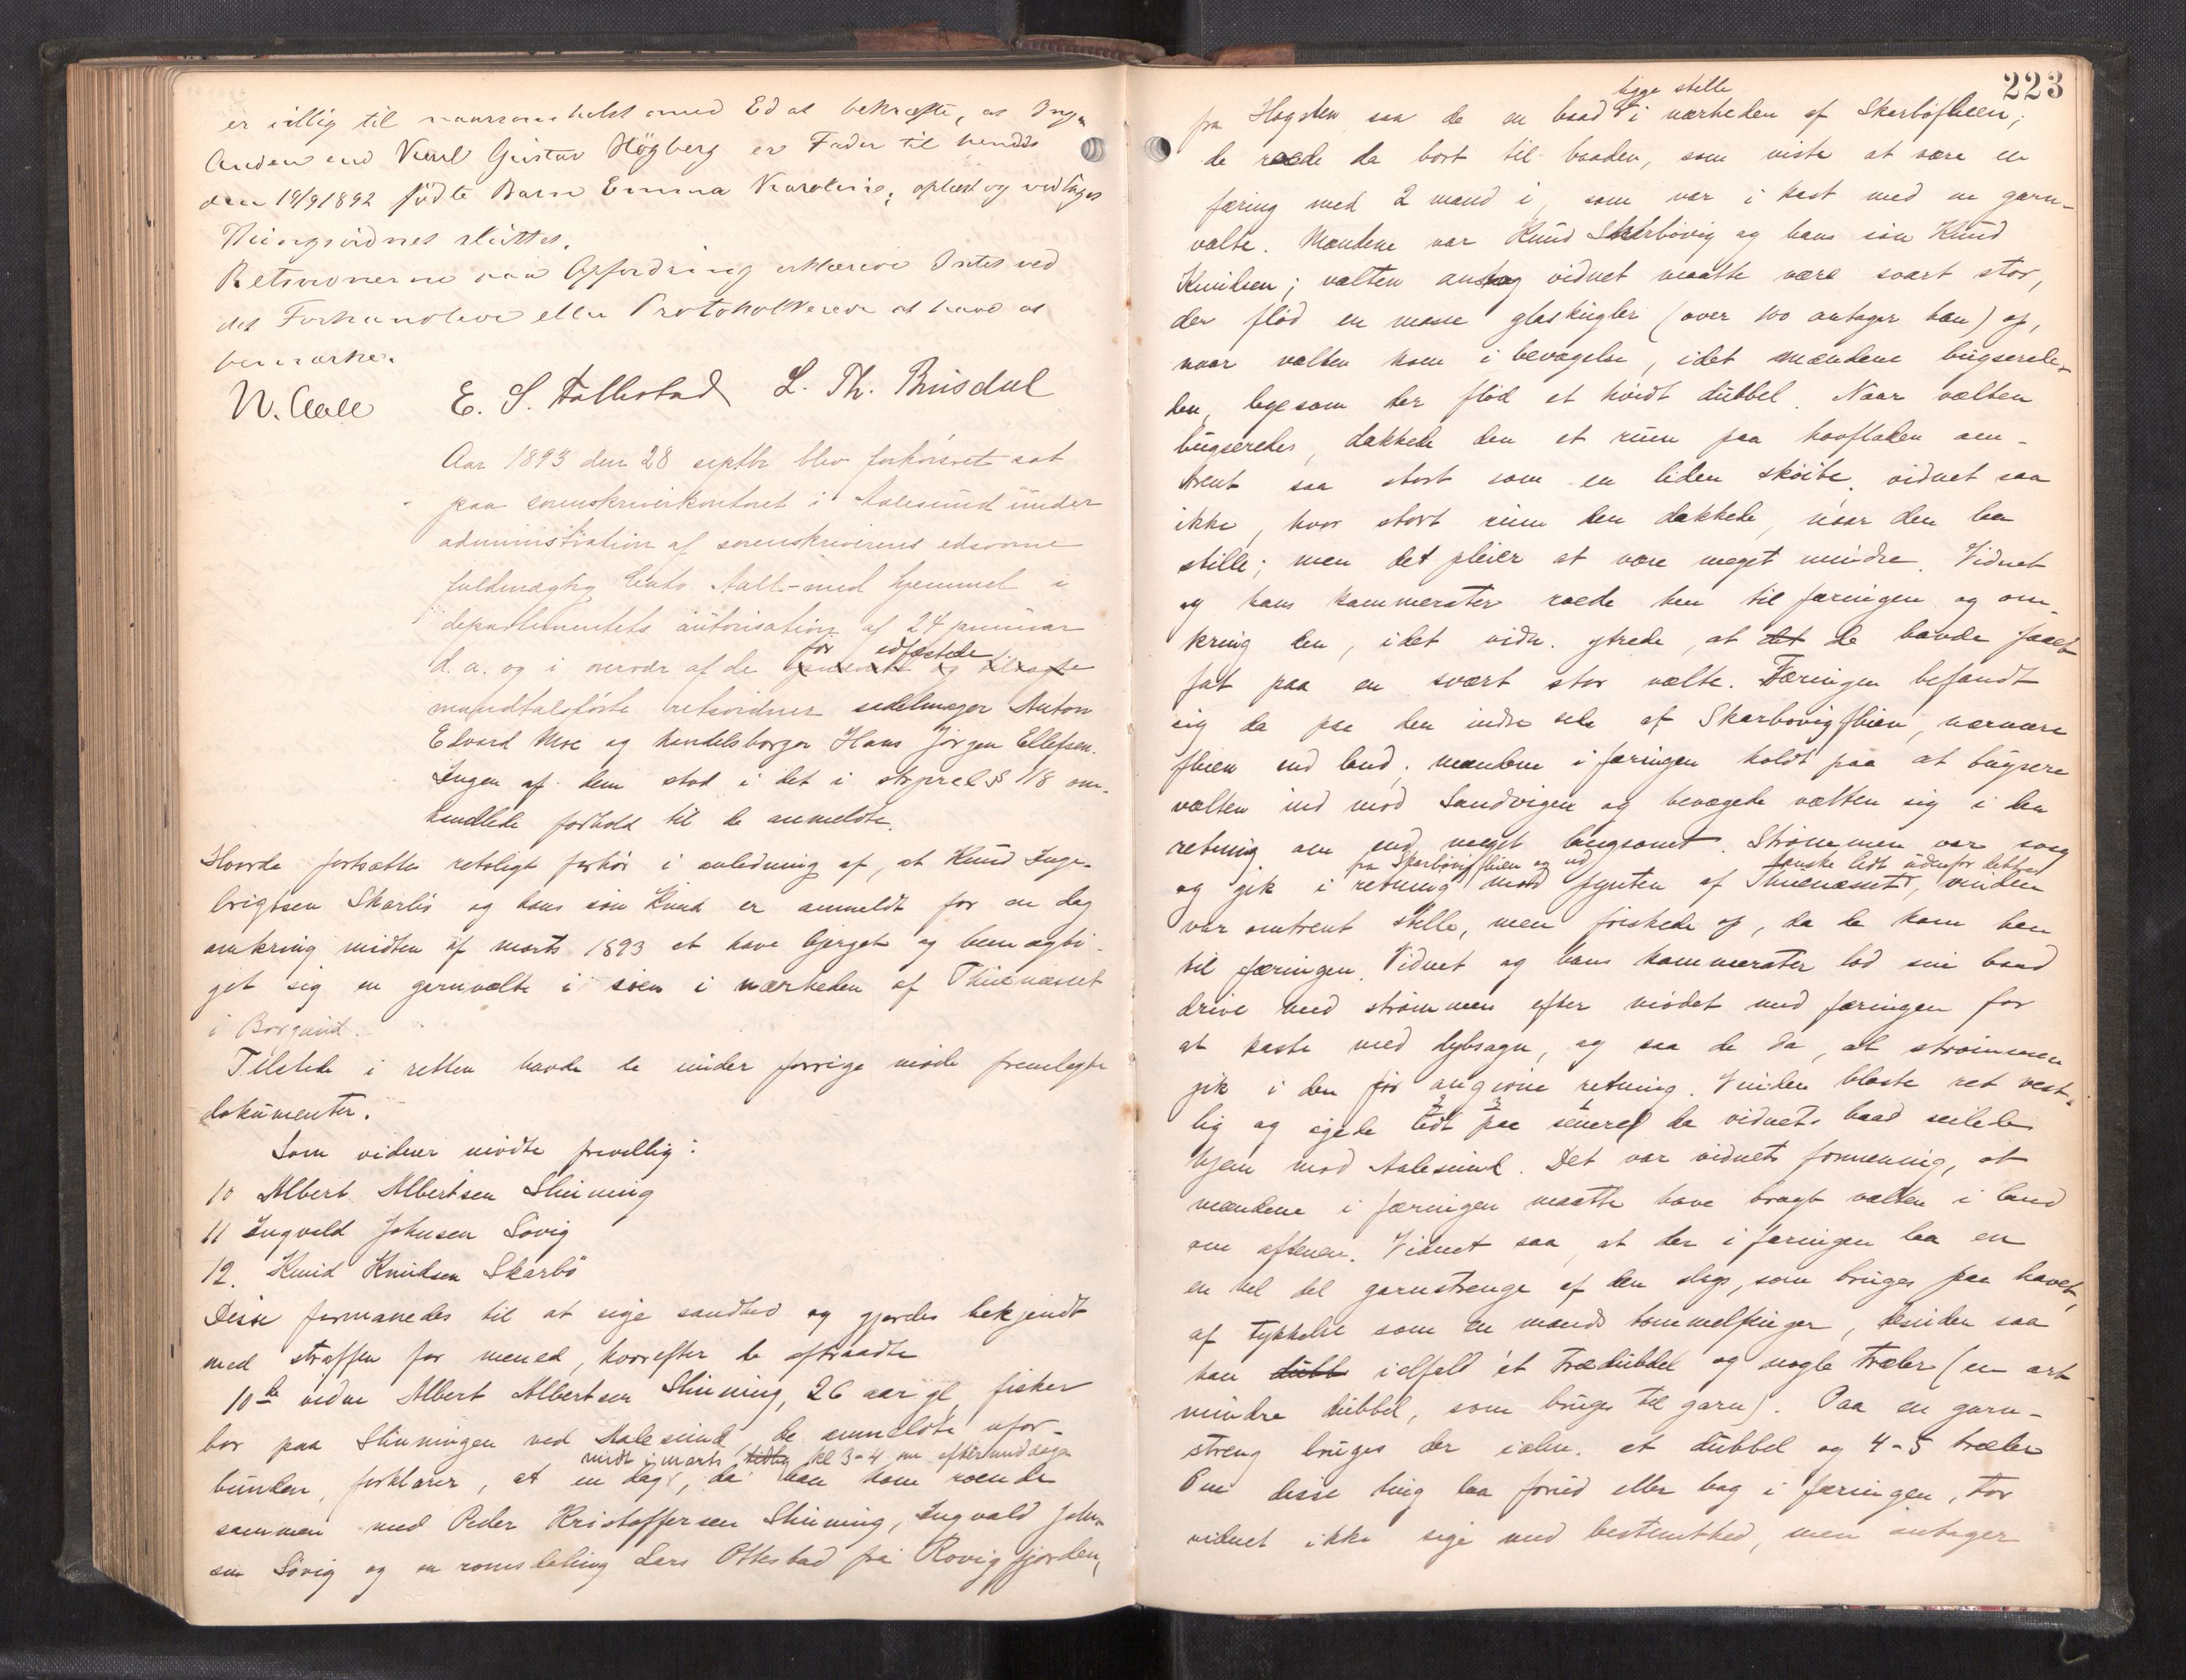 er villig til naarsomhelst med Ed at bekræfte, at Ingen
Anden end Karl Gustav Högberg er Fader til hendes
den 19/9 1892 fødte Barn Emma Karoline; oplæst og vedtaget
Thingsvidnet sluttet.
Retsvidnerne paa Opfordring erklærede Intet ved
det Forhandlede eller Protokollerede at have at
bemærke.
N. Aall E. S. Fallestad L. Th. Brusdal
Aar 1893 den 28 septbr blev forhørsret sat
paa sorenskriverkontoret i Aalesund under
administration af sorenskriverens edsvorne
fuldmægtig Aall med hjemmel i
departementets autorisation af 24 januar
for edfæstede
d. a. og i overvær af de og
mandtalsførte retsvidner sadelmager Anton
Edvard Moe og handelsborger Hans Jørgen Ellefsen.
Ingen af dem stod i det i strprcl § 118 om-
handlede forhold til de anmeldte.
Hvorda fortsattes retsligt forhør i anledning af, at Knud Inge-
brigtsen Skarbø og hans søn Knud er anmeldt for en dag
omkring midten af marts 1893 at have bjerget og bemægti-
get sig en garnvælte i søen i nærheden af Thuenæsset
i Borgund.
Tilstede i retten havde de under forrige møde fremlagte
dokumenter.
Som vidner mødte frivillig:
10 Albert Albertsen Slinning
11 Ingvald Johnsen Søvig
12. Knud Knudsen Skarbö
Disse formanedes til at sige sandhed og gjordes bekjendt
med straffen for mened, hvorefter de aftraadte
10de vidne Albert Albertsen Slinning, 26 aar gl, fisker
bor paa Slinningen ved Aalesund, de anmeldte ufor-
midt i marts tidlig kl 3-4 om eftermiddagen
bunden, forklarer, at en dag, da han kom roende
sammen med Peder Kristoffersen Slinning, Ingvald John-
sen Søvig og en romsdaling Lars Ottestad fra Rovigfjorden,
223
ligge stille
fra Hogsten saa de en baad i nærheden af Skarbøfluen;
de roede da bort til baaden, som viste at være en
færing med 2 mand i, som var i kast med en garn-
vælte. Mændene var Knud Skarbövig og hans søn Knud
Knudsen; vælten antog vidnet maatte være svært stor,
der flød en masse glaskugler (over 100 antager han) op,
naar vælten kom i bevægelse, idet mændene bugserede
den, ligesom der flød et hvidt dubbel. Naar vælten
bugseredes, dækkede den et rum paa havfladen om-
trent saa stort som en liden skøite, vidnet saa
ikke, hvor stort rum den dækkede, naar den laa
stille; men det pleier at være meget mindre. Vidnet
og hans kammerater roede hen til færingen og om-
kring den, idet vidn. ytrede, at det de havde faaet
fat paa en svært stor vælte. Færingen befandt
sig da paa den indre side af Skarbovigfluen, nærmere
fluen end land; mændene i færingen holdt paa at bugsere
vælten ind mod Sandvigen og bevægede vælten sig i den
retning om end meget langsomt. Strømmen var svag
fra Skarbövigfluen og ud ganske lidt udenfor dette
og gik i retning mod pynten af Thuenæsset, vinden
var omtrent stille, men friskede op, da de kom hen
til færingen. Vidnet og hans kammerater lod sin baad
drive med strømmen efter mødet med færingen for
at kaste med dybsagn, og saa de da, at strømmen
gik i den før angivne retning. Vinden blæste ret vest-
2 3 1
lig og øgede lidt paa senere da vidnets baad seilede
hjem mod Aalesund. Det var vidnets formening, at
mændene i færingen maatte have bragt vælten i land
om aftenen. Vidnet saa, at der i færingen laa en
en hel del garnstrenge af den slags, som bruges paa havet,
af tykkelse som en mands tommelfinger, desuden saa
han dubb ialfald ét trædubbel og nogle træler (en art
mindre dubbel, som bruges til garn). Paa en garn-
streng bruges der ialm. et dubbel og 4-5 træler
Om disse ting laa forud eller bag i færingen, tør
vidnet ikke sige med bestemthed, men antager